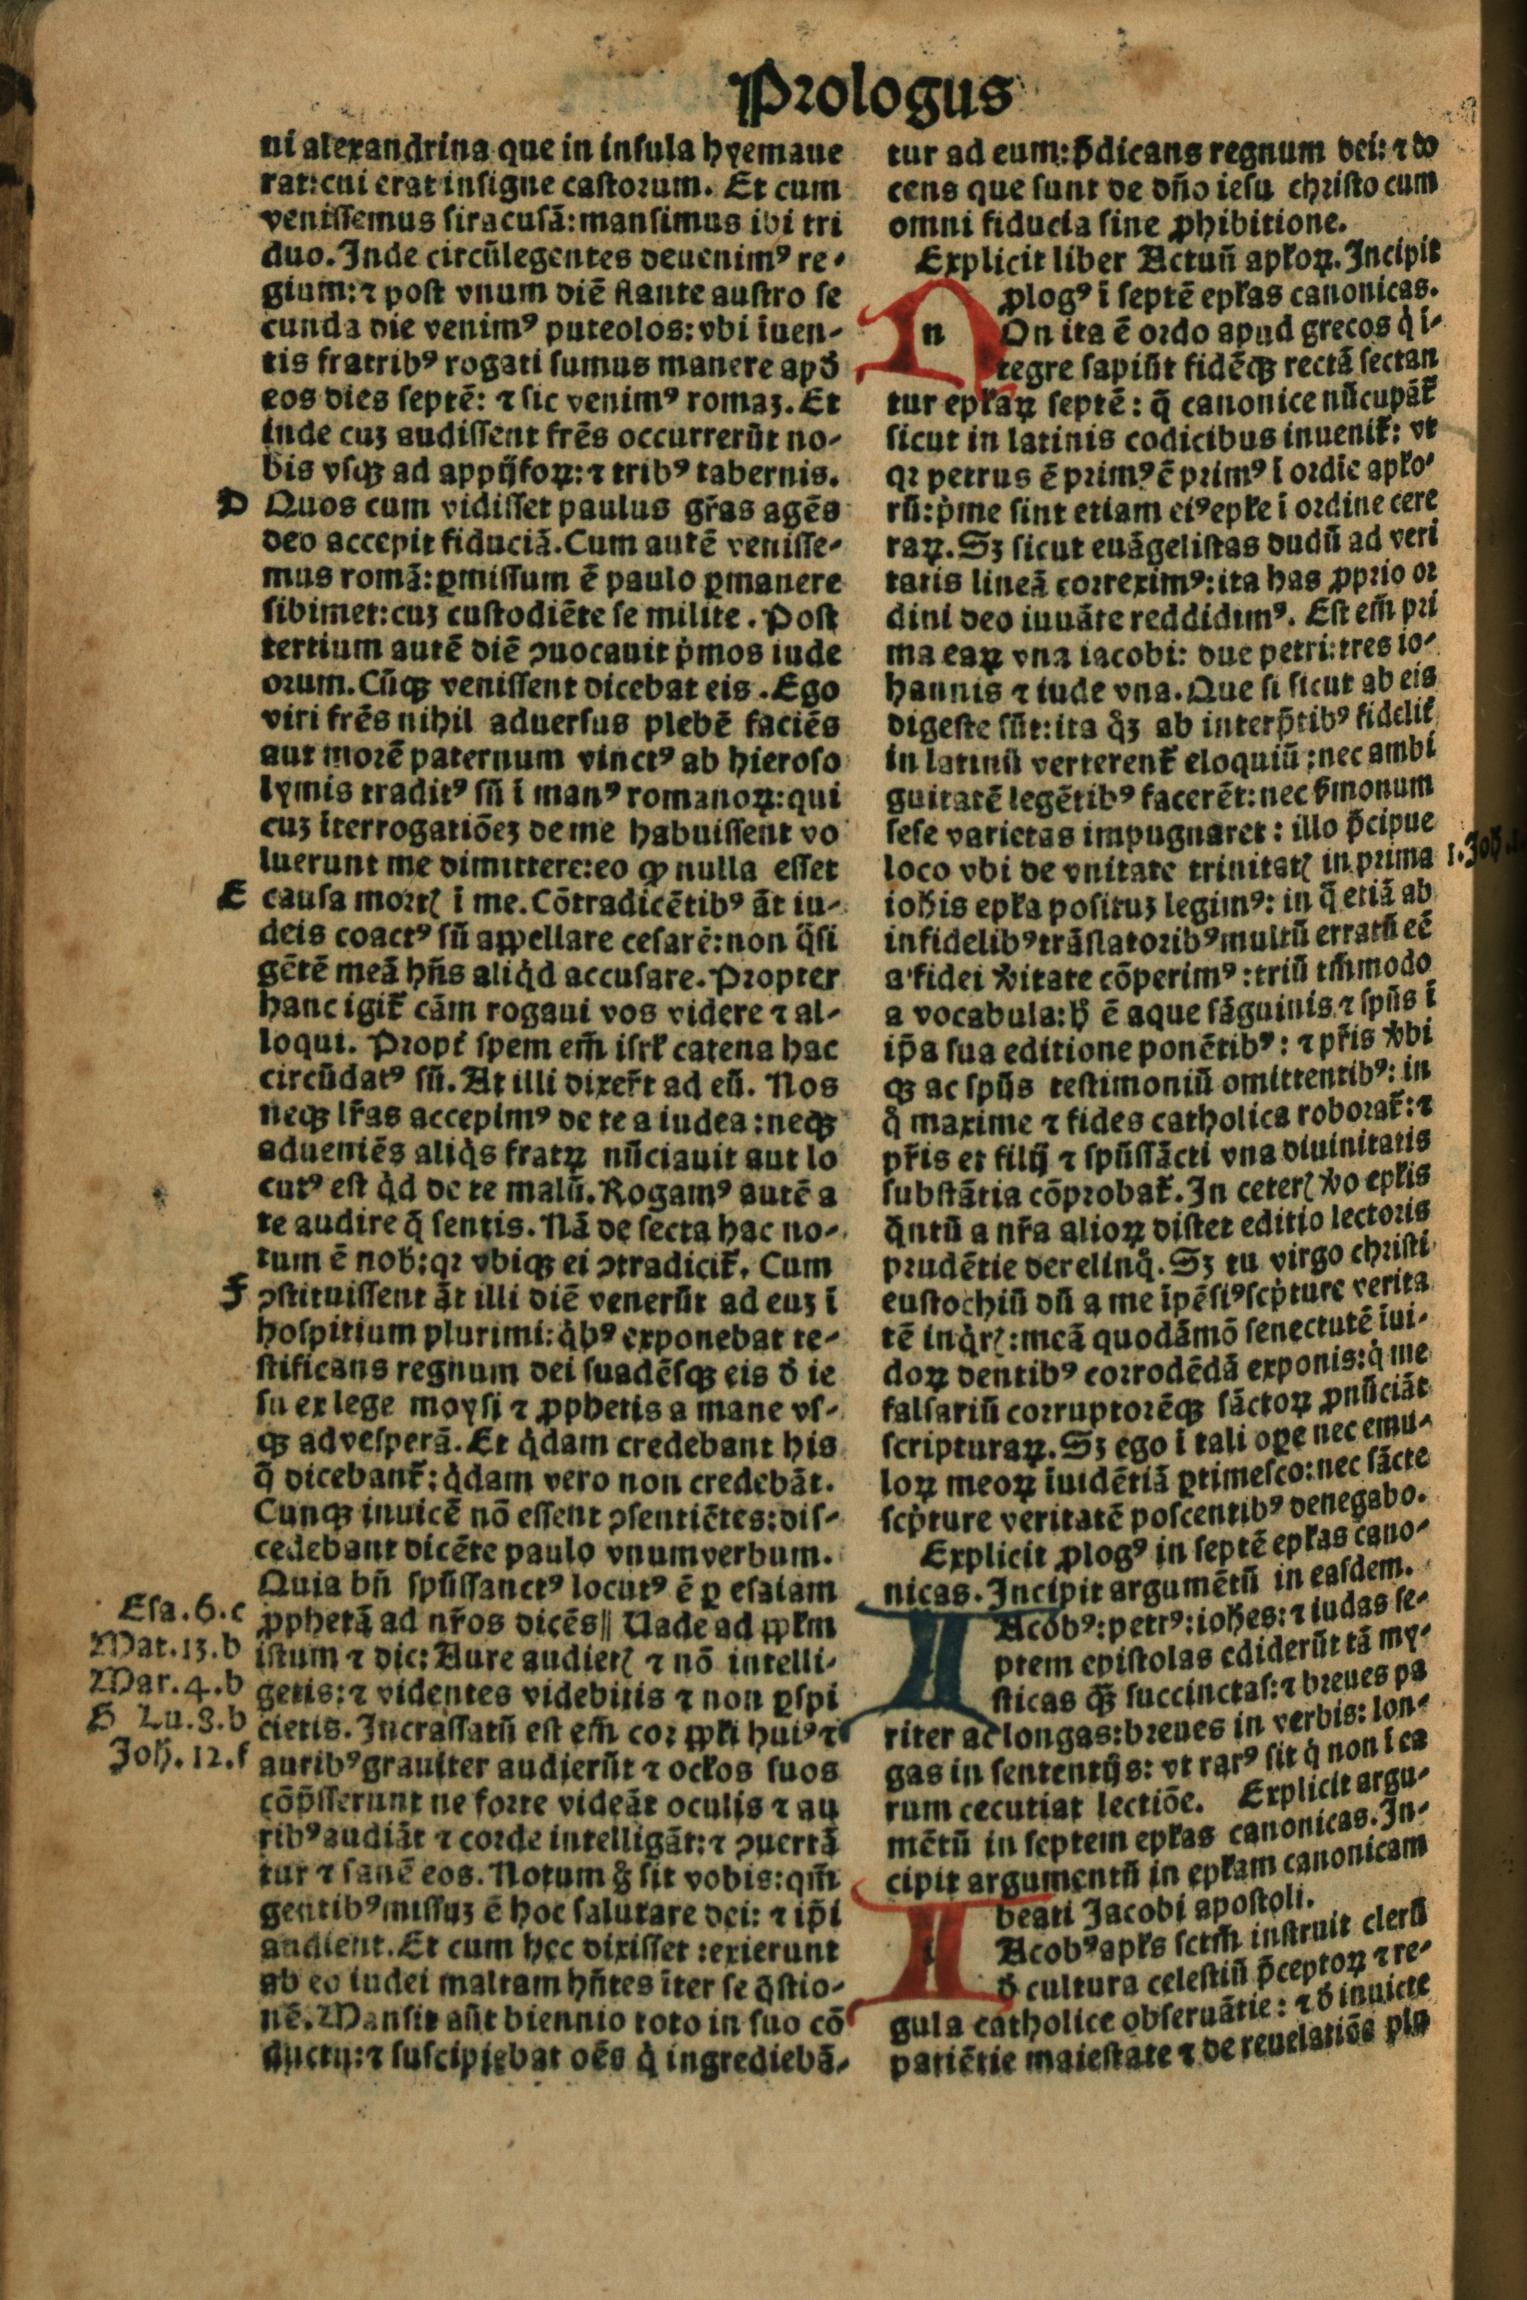 Prologus
ni alexandrina que in insula hyemaue
rat:cui erat insigne castorum. Et cum
venissemus siracusā: mansimus ibi tri
duo. Inde circūlegentes deuenimꝰ re-
gium: ⁊ post vnum diē flante austro se
cunda die venimꝰ puteolos: vbi īuen-
tis fratribꝰ rogati sumus manere apđ
eos dies septē: ⁊ sic venimꝰ romaꝫ. Et
inde cuꝫ audissent frēs occurrerūt no-
bis vsqꝫ ad appijfoꝝ: ⁊ tribꝰ tabernis.
D Quos cum vidisset paulus gr̄as agēs
deo accepit fiduciā. Cum autē venisse-
mus romā: ꝑmissum ē paulo ꝑmanere
sibimet: cuꝫ custodiēte se milite. Post
tertium autē diē ꝯuocauit pͥmos iude
orum. Cūqꝫ venissent dicebat eis. Ego
viri frēs nihil aduersus plebē faciēs
aut morē paternum vinctꝰ ab hieroso
lymis traditꝰ sū ī manꝰ romanoꝝ: qui
cuꝫ īterrogatiōeꝫ de me habuissent vo
luerunt me dimittere: eo ꝙ nulla esset
E causa mortꝭ ī me. Cōtradicētibꝰ āt iu-
deis coactꝰ sū appellare cesarē: non q̄si
gētē meā hn̄s aliqͥd accusare. Propter
hanc igit᷑ cām rogaui vos videre ⁊ al-
loqui. Propt̕ spem em̄ isrł catena hac
circūdatꝰ sū. At illi dixer̄t ad eū. Nos
neqꝫ lr̄as accepimꝰ de te a iudea: neqꝫ
adueniēs aliqͥs fratꝝ nūciauit aut lo
cutꝰ est qͥd de te malū. Rogamꝰ autē a
te audire q̄ sentis. Nā de secta hac no-
tum ē nob̄: qꝛ vbiqꝫ ei ꝯtradicit᷑. Cum
F ꝯstituissent āt illi diē venerūt ad euꝫ ī
hospitium plurimi: qͥbꝰ exponebat te-
stificans regnum dei suadēsqꝫ eis đ ie
su ex lege moysi ⁊ ꝓphetis a mane vs-
qꝫ ad vesperā. Et qͥdam credebant his
q̄ dicebant᷑: qͥdam vero non credebāt.
Cunqꝫ inuicē nō essent ꝯsentiētes: dis-
cedebant dicēte paulo vnum verbum.
Quia bn̄ spūssanctꝰ locutꝰ ē ꝑ esaiam
Esa.6.c
Mat.13.b
Mar.4.b
H Lu.8.b
Joh̄.12.f
ꝓphetā ad nr̄os dicēs|| Uade ad ppłm
istum ⁊ dic: Aure audietꝭ ⁊ nō intelli-
getis: ⁊ videntes videbitis ⁊ non ꝑspi
cietis. Incrassatū est em̄ cor ppłi huiꝰ ⁊
auribꝰ grauiter audierūt ⁊ ocłos suos
cōp̄sserunt ne forte videāt oculis ⁊ au
ribꝰ audiāt ⁊ corde intelligāt: ⁊ ꝯuertā
tur ⁊ sanē eos. Notum g̊ sit vobis: qm̄
gentibꝰ missuꝫ ē hoc salutare dei: ⁊ ip̄i
audient. Et cum hec dixisset: exierunt
ab eo iudei multam hn̄tes īter se q̄stio-
nē. Mansit aūt biennio toto in suo cō
ductu: ⁊ suscipiebat oēs qͥ ingrediebā-
tur ad eum: p̄dicans regnum dei: ⁊ do
cens que sunt de dn̄o iesu christo cum
omni fiducia sine ꝓhibitione.
Explicit liber Actuū apłoꝝ. Incipit
ꝓlogꝰ ī septē epłas canonicas.
n On ita ē ordo apud grecos qͥ ī-
tegre sapiūt fidēqꝫ rectā sectan
tur epłaꝝ septē: q̄ canonice nūcupāt᷑
sicut in latinis codicibus inuenit᷑: vt
qꝛ petrus ē primꝰ ē primꝰ ī ordie apło-
rū: pͥme sint etiam eiꝰ epłe ī ordine cete
raꝝ. Sꝫ sicut euāgelistas dudū ad veri
tatis lineā correximꝰ: ita has ꝓprio or
dini deo iuuāte reddidimꝰ. Est em̄ pri
ma eaꝝ vna iacobi: due petri: tres io-
hannis ⁊ iude vna. Que si sicut ab eis
digeste sūt: ita q̊ꝫ ab interp̄tibꝰ fidelit᷑
in latinū verterent᷑ eloquiū: nec ambi
guitatē legētibꝰ facerēt: nec s̄monum
sese varietas impugnaret: illo p̄cipue
loco vbi de vnitate trinitatꝭ in prima
1.Joh̄.
ioh̄is epła posituꝫ legimꝰ: in q̄ etiā ab
infidelibꝰ trāslatoribꝰ multū erratū eē
a fidei v̄itate cōperimꝰ: triū tm̄modo
a vocabula: hͦ ē aque sāguinis ⁊ spūs ī
ip̄a sua editione ponētibꝰ: ⁊ pr̄is v̄bi
qꝫ ac spūs testimoniū omittentibꝰ: in
qͦ maxime ⁊ fides catholica roborat᷑: ⁊
pr̄is et filij ⁊ spūssācti vna diuinitatis
substātia cōprobat᷑. In ceterꝭ v̄o epłis
q̄ntū a nr̄a alioꝝ distet editio lectoris
prudētie derelinqͦ. Sꝫ tu virgo christi
eustochiū dū a me īpēsiꝰ scpͥture verita
tē inqͥrꝭ: meā quodāmō senectutē īui-
doꝝ dentibꝰ corrodēdā exponis: qͥ me
falsariū corruptorēqꝫ sāctoꝝ ꝓnūciāt
scripturaꝝ. Sꝫ ego ī tali oꝑe nec emu-
loꝝ meoꝝ īuidētiā ꝑtimesco: nec sācte
scpͥture veritatē poscentibꝰ denegabo.
Explicit ꝓlogꝰ in septē epłas cano-
nicas. Incipit argumētū in easdem.
I Acobꝰ: petrꝰ: ioh̄es: ⁊ iudas se-
ptem epistolas ediderūt tā my-
sticas q̄ꝫ succinctas: ⁊ breues pa
riter ac longas: breues in verbis: lon-
gas in sententijs: vt rarꝰ sit qͥ non ī ea
rum cecutiat lectiōe. Explicit argu-
mētū in septem epłas canonicas. In-
cipit argumentū in epłam canonicam
beati Jacobi apostoli.
I Acobꝰ apłs sctm̄ instruit clerū
đ cultura celestiū p̄ceptoꝝ ⁊ re-
gula catholice obseruātie: ⁊ đ inuicte
patiētie maiestate ⁊ de reuelatiōe pło